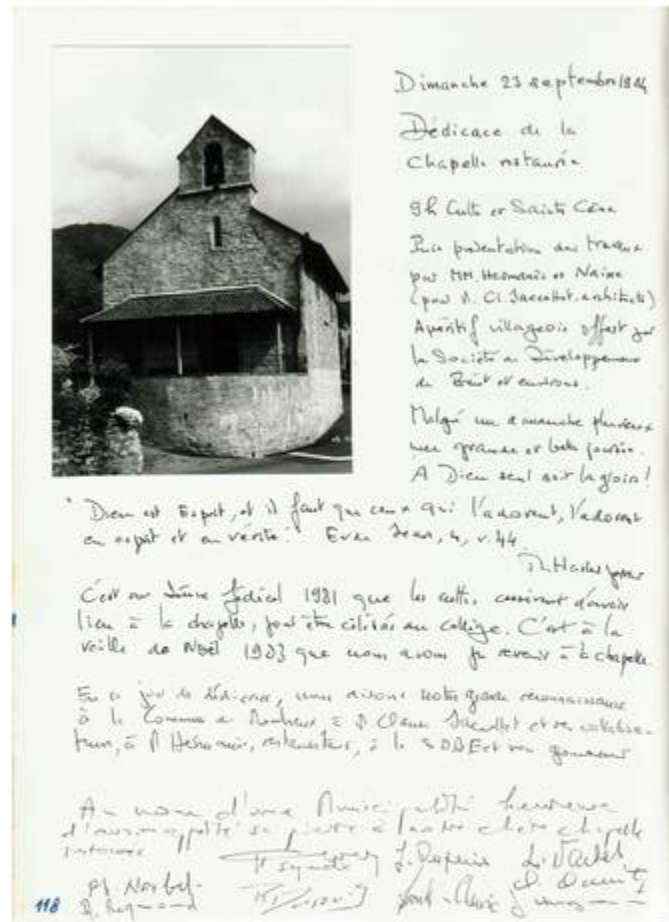 Dimanche 23 septembre 1984
Dédicace de la
Chapelle restaurée
9h Culte et Sainte Cène
Puis présentation des travaux
par MM. Hermanès et Naime
(pour M. Cl. Jaccottet, architecte)
Apéritif villageois offert par
la Société de Développement
de et environs.
Malgré un dimanche pluvieux
une grande et belle journée.
A Dieu seul soit la gloire!
"Dieu est Esprit, et il faut que ceux qui l'adorent, l'adorent
en esprit et en vérité." Evan Jean, 4, v.
C'est au Jeûne fédéral 1981 que les cultes cessèrent d'avoir
lieu à la chapelle, pour être célébrés au collège. C'est à la
veille de Noël 1983 que nous avons pu revenir à la chapelle.
En ce jour de dédicace, nous disons notre grande reconnaissance
à la Commune de Montreux à Claude Jaccottet et ses collabora-
teurs, à M Hermanès, restaurateur, à la SD
Au nom d'une Municipalité heureuse
d'avoir apporté sa pierre à notre chère chapelle
118